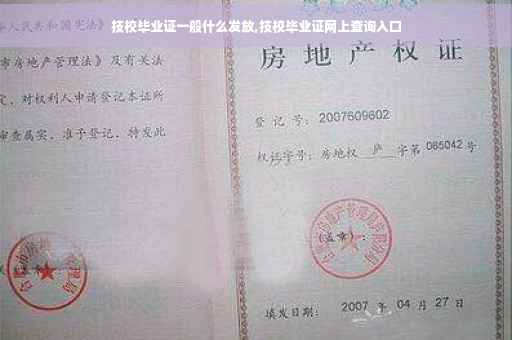 技校毕业证一般什么发放,技校毕业证网上查询入口
人民共和国宪法》
市房地产管理法》及有关法
定，对权利人申请登记本证所
审查属实，准予登记，特发此
房地产权证
登记号：2007609602
权证字号：房地权 庐 字第 065042 号
(盖章)：
房地产管理局
填发日期：2007 年 04 月 27 日